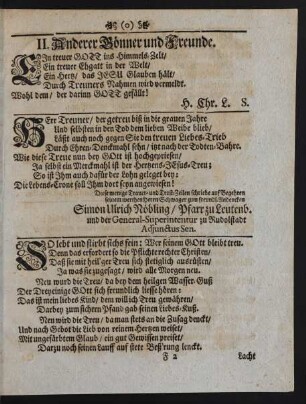 (0)
II. Anderer Gönner und Freunde.
EIn treuer GOTT ins Himmels-Zelt/
Ein treuer Ehgatt in der Welt/
Ein Hertz/ das JESU Glauben hält/
Durch Treuners Nahmen wird vermeldt.
Wohl dem/ der darinn GOTT gefällt!
H. Chr. L. S.
HErr Treuner/ der getreu biß in die grauen Jahre
Und selbsten in den Tod dem lieben Weibe blieb/
Läßt auch noch gegen Sie den treuen Liebes-Trieb
Durch Ehren-Denckmahl sehn/ itzt nach der Todten-Bahre.
Wie diese Treue nun bey GOtt ist hochgepriesen/
Ja selbst ein Merckmahl ist der Hertzens-JEsus-Treu;
So ist Ihm auch dafür der Lohn geleget bey;
Die Lebens-Crone soll Ihm dort seyn angewiesen!
Diese wenige Trauer- und Trost-Zeilen schriebe auf Begehren
seinem werthen Herrn Schwager zum
Simon Ulrich Nöbling/ Pfarr zu Leutenb.
und der General-Superintentur zu Rudolstadt
Adjunctus Sen.
SO lebt und stiebt sichs fein: Wer seinem GOtt bleibt treu.
Denn das erfordert so die Pflichte rechter Christen/
Daß sie mit heil'ger Treu sich stetiglich ausrüsten/
Ja was sie zugesagt/ wird alle Morgen neu.
Neu wurd die Treu/ da bey dem heilgen Wasser-Guß
Der Dreyeinige GOtt sich freundlich liesse hören:
Das ist mein liebes Kind/ dem will ich Treu gewähren/
Darbey zum sichern Pfand gab seinen Liebes-Kuß.
Neu wird die Treu/ da man stets an die Zusag denckt/
Und nach Gebot die Lieb von reinem Hertzen weiset/
Mit ungefärbtem Glaub/ ein gut Gewissen preiset/
Darzu noch seinen Lauff auf stete Bess'rung lenckt.
F 2
Lacht